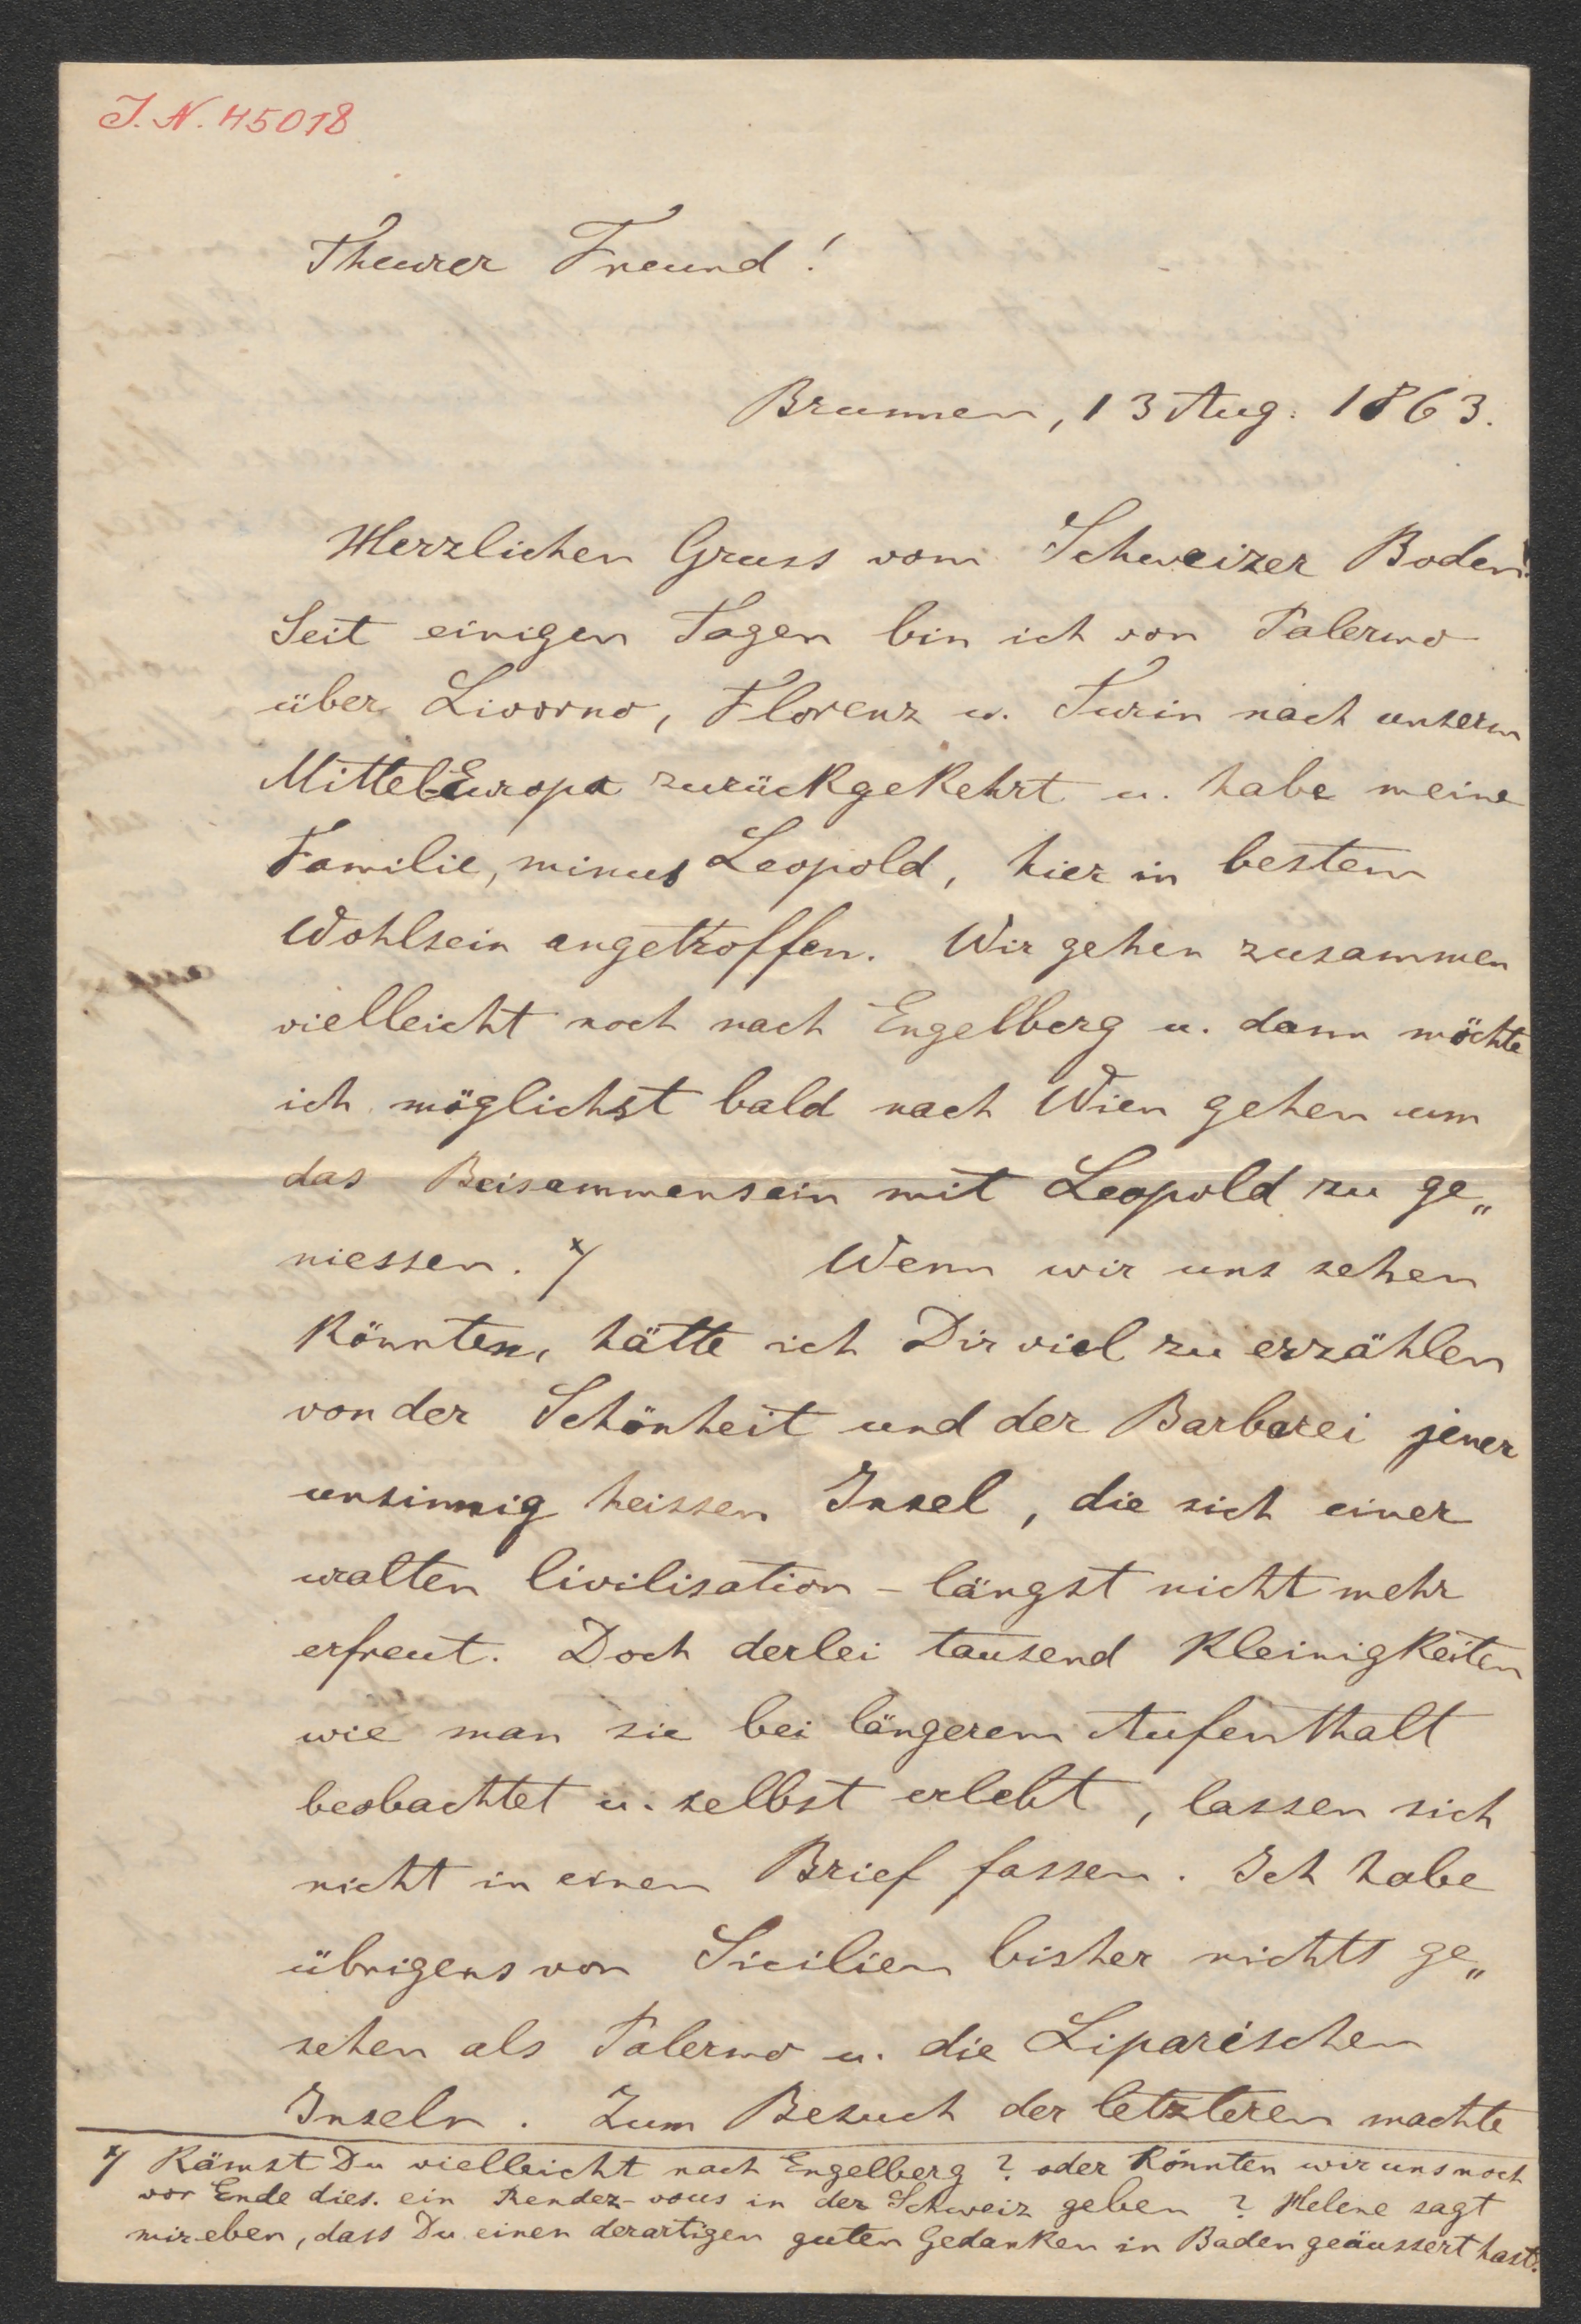 I. N. 45018
Theurer Freund!
Brunnen, 13 Aug. 1863.
Herzlichen Gruss vom Schweizer Boden!
Seit einigen Tagen bin ich von Palermo
über Livorno, Florenz u. Turin nach unserm
MittelEuropa zurückgekehrt u. habe meine
Familie, minus Leopold, hier in bestem
Wohlsein angetroffen. Wir gehen zusammen
vielleicht noch nach Engelberg u. dann möchte
ich möglichst bald nach Wien gehen um
das Beisammensein mit Leopold zu ge„
niessen. x/ Wenn wir uns sehen
könnten, hätte ich Dir viel zu erzählen
von der Schönheit und der Barbarei jener
unsinnig heissen Insel, die sich einer
uralten Civilisation – längst nicht mehr
erfreut. Doch derlei tausend Kleinigkeiten
wie man sie bei längerem Aufenthalt
beobachtet u. selbst erlebt, lassen sich
nicht in einen Brief fassen. Ich habe
übrigens von Sicilien bisher nichts ge„
sehen als Palermo u. die Liparischen
Inseln. Zum Besuch der letzteren machte
x/ Kämst Du vielleicht nach Engelberg? oder könnten wir uns noch
vor Ende dies. ein Rendez-vous in der Schweiz geben? Helene sagt
mir eben, dass Du einen derartigen guten Gedanken in Baden geäussert hast.